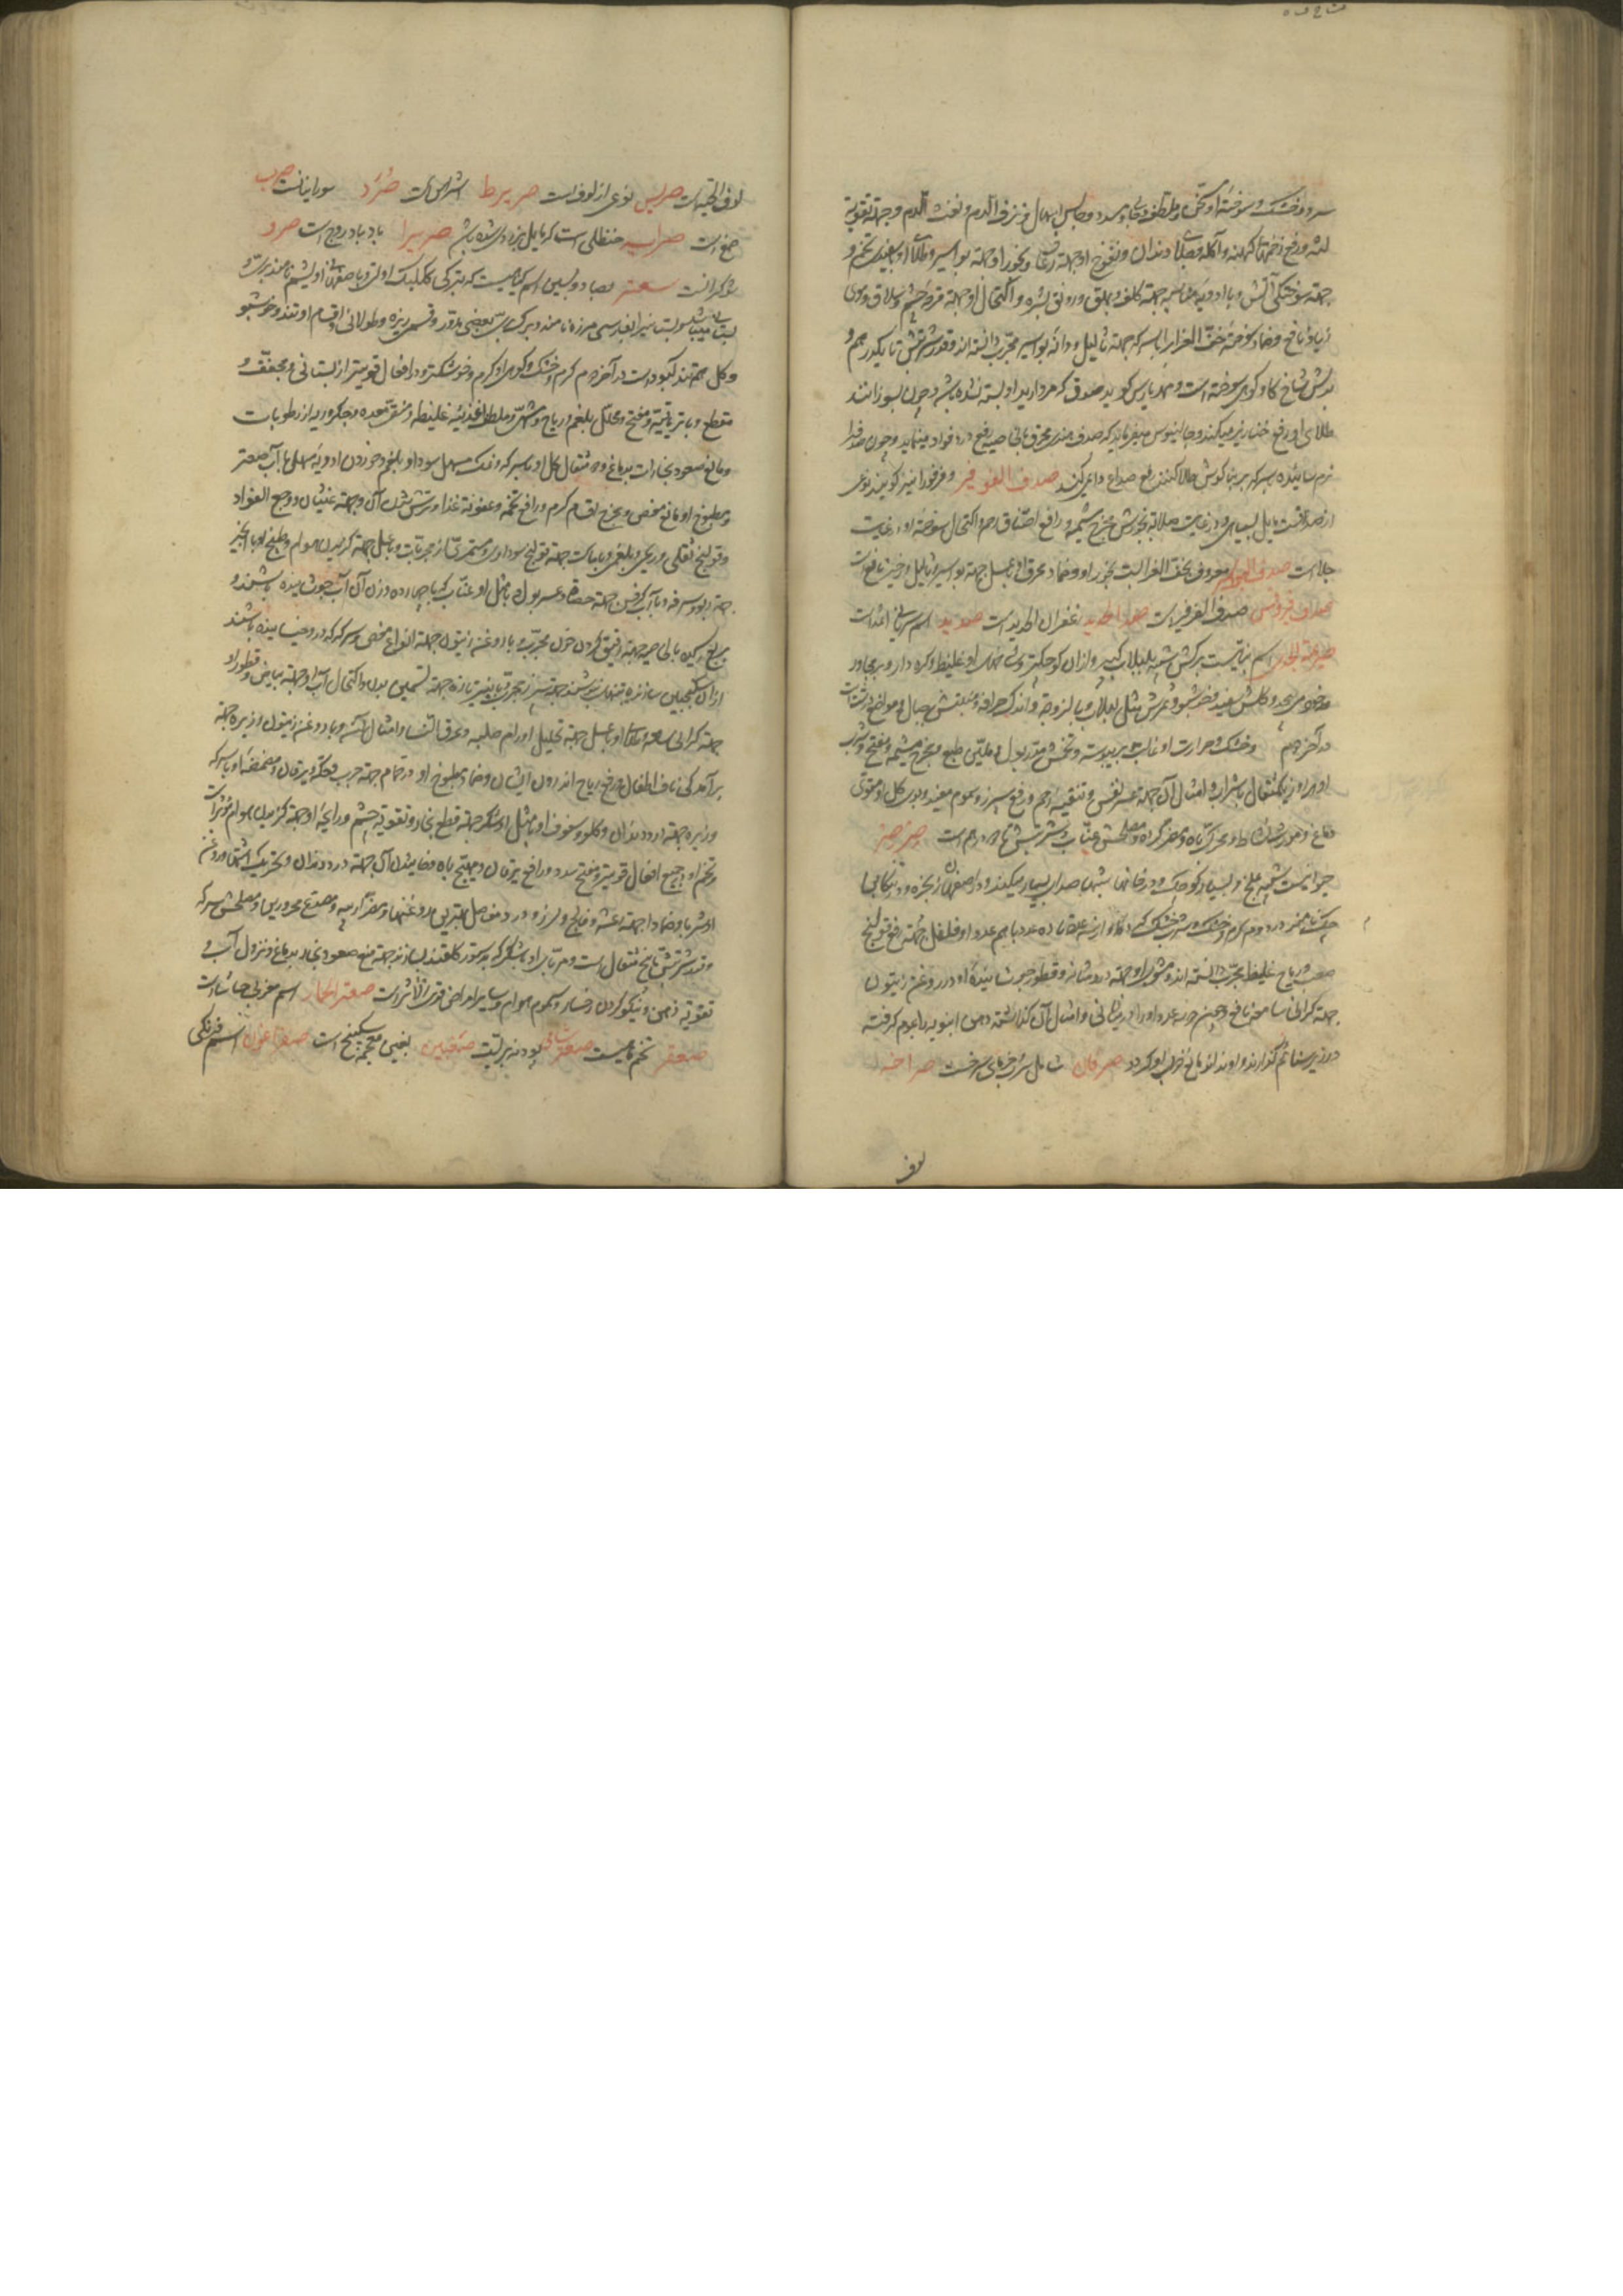 سرد و خشک و سوخته او سخن و ملطف و جالی و سدد و حابس اسهال و نزف الدم و نفث الدم و جهة تقویة
لثه و رفع زخمهای کهنه و آکله و جلای دندان و نفوخ او جهة رعاف و بخور او جهة بواسیر و طلای او بسفیده تخم و
جهة سوختگی آتش و با ادویه مناسبه جهة کلف و بهق و رونق بشره و اکتحال او جهة قرحه چشم و سلاق و موی
زیاد نافع و ضماد سوخته خف الغراب با سرکه جهة ثالیل و دانه بواسیر مجرب دانسته اند و قدر شربتش تا یکدرهم و
بدلش شاخ گاو کوهی سوخته است و مهد پارس گوید صدف که مروارید او بسته نشده باشد چون بسوزانند
طلای او رفع خنازیر میکند و جالینوس میفرماید که صدف هندی محرق بالخاصیه رفع درد فواد مینماید و چون صدف را
نرم سائیده بسرکه بر بناگوش طلا کنند رفع صداع دایمی کند صدف الفرفیر و فرفورا نیز گویند نوعی
از صدفست مایل بسیاهی و در غایت صلابة بخورش مخرج مشیمه و رافع اختناق رحم و اکتحال سوخته او در غایت
جلا است صدف البواسیر معروف بخف الغرابست بخور او و ضماد محرق او با عسل جهة بواسیر و ثالیل و غیره نافع است
صداف فرونس صدف الفرفیر است صدا الحدید زعفران الحدید است صدید اسم سریانی اثمد است
صریمة الجدی اسم نباتیست برگش شبیه بلبلاب کبیر و از آن کوچکتر و شاخهای او غلیظ و گره دار و بر مجاور
خود می پیچد و گلش سفید و خوشبو و ثمرش مثل لبلاب و با لزوجة و اندک حرافة و منبتش جبال و مواضع درشتست
در آخر دوم و خشک و حرارت او غالب بر یبوسة و تخمش مدر بول و ملین طبع و مخرج مشیمه و مفتح و شرب
او هر روز یکمثقال با شراب و امثال آن جهة عسر نفس و تنقیه رحم و رفع سپرز و سموم مفید و بوی گل او مقوی
دماغ و مورث نشاط و محرک باه و مضر گرده و مصلحش عناب و شربتش تا دو درهم است صرصر
حیوانیست شبیه بملخ و بسیار کوچک و در خانها شبها صدای بسیار میکند و در اصفهان زنجره و در تنکابن
جیک نامند در دوم گرم و خشک و شرب خشک کرده او از سه عدد تا ده عدد با هم عدد او فلفل جهة رفع قولنج
صعب و ریاح غلیظ مجرب دانسته اند و مشوی او جهة درد مثانه و قطور جوشانیده او در روغن زیتون
جهة گرانی سامعه نافع و چون چند عدد او را در نی و امثال آن گذاشته دهن انبوبه را بموم گرفته
در زیر سنائم گذارند و بدانند مانع خواب او گردد صرفان شامل سرب و خرمای سرخست صراحیه
لوف
لوف الحیه است صریس نوعی از لوف است صریرط اشراس است صُرَد سودانیات است صرب
صمغ است صرایه حنظلی است که مایل بزردی شده باشد صریرا بادروج است صرد
شوکرانست سعتر بصاد و سین اسم گیاهیست که بترکی ککلیک اوتی و باصفهانی اویشم نامند بری و
بستانی میباشد و بستانی را بفارسی مرزه نامند و برگ بعضی مدور و قسمی ریزه و طولانی و اقسام او تند و خوشبو
و گل همه تند و کبود است در آخر دوم گرم و خشک و کوهی او گرم و خشکتر و در افعال قویتر از بستانی و مجفف و
مقطع و با تریاقیة و مفتح و محلل بلغم و ریاح و مشهی و ملطف اغذیه غلیظه و منقی معده و جگر و ریه از رطوبات
و مانع صعود بخارات بدماغ و ده مثقال گل او با سرکه و نمک مسهل سودا و بلغم و خوردن ادویه مسهل با آب صعتر
و مطبوخ او مانع مغص و مخرج اقسام کرم و رافع تخمه و عفونة غذا و ترش شدن آن و جهة غثیان و وجع الفواد
و قولنج ثفلی و ریحی و بلغمی و با ماست جهة قولنج سوداوی و مستمر از مجربات و با عسل جهة گزیدن هوام و طبیخ او با انجیر
جهة ربو و سرفه و با آب کرفس جهة حصاة و عسر بول و با مثل او عناب که با چهارده وزن آن آب جوشانیده باشند و
بربع رسیده بالخاصیه جهة رقیق کردن خون مجرب و با روغن زیتون جهة انواع مغص و سرکه که در و خیسانیده باشند
از آن سکنجبین سازند و بتنهائی نوشند جهة سپرز مجرب و با پنیر تازه جهة تسمین بدن و اکتحال آب او جهة بیاض و قطور او
جهة گرانی سامعه و ضماد او با عسل جهة تحلیل اورام صلبه و عرق النسا و امثال آنها و با روغن زیتون و زیره جهة
برآمدگی ناف اطفال و رفع ریاح اندرون ایشان و ضماد مطبوخ او در تمام جهة جرب و حکه و یرقان و مضمضه او با سرکه
و زیره جهة درد دندان و گلو و سفوف او با مثل او شکر جهة قطع بخار و تقویة چشم و رایحه او جهة گزیدن هوام موثر است
و تخم او در جمیع افعال قویتر و مفتح سدد و رافع یرقان و مهیج باه و خائیدن آن جهة درد دندان و تحریک اشتها و روغن
او شربا و ضمادا جهة رعشه و فالج و لرز و درد مفاصل بهترین روغنها و مضر ریه و مصدع محرورین و مصلحش سرکه
و قدر شربتش تا پنج مثقال است و مربای او با شکر که بدستور گلقند بسازند جهة منع صعود بخار بدماغ و نزول آب و
تقویة ذهن و نیکو کردن رخسار و سموم هوام و سایر امراض قوی الاثر است صعتر الحمار اسم مغربی حاشا است
صعتر تخم نامیست صعتر شامی پودنه بریست صغبین بغین معجمه سکبینج است صفراغون اسم فرنگی